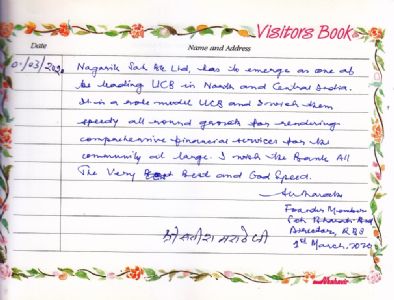 Visitors Book
Date
Name and Address
01/03/2020
Nagarik Sah Bk Ltd, has to emerge as one of
the leading UCB in North and Central India.
It is a role model UCB and I wish them
speedy all round growth for rendering
comprehensive financial services for the
community at large. I wish the Bank All
The Very Best and God Speed.
Founder Member
Director, RBI
1st March, 2020
श्री सतीश मराठे जी